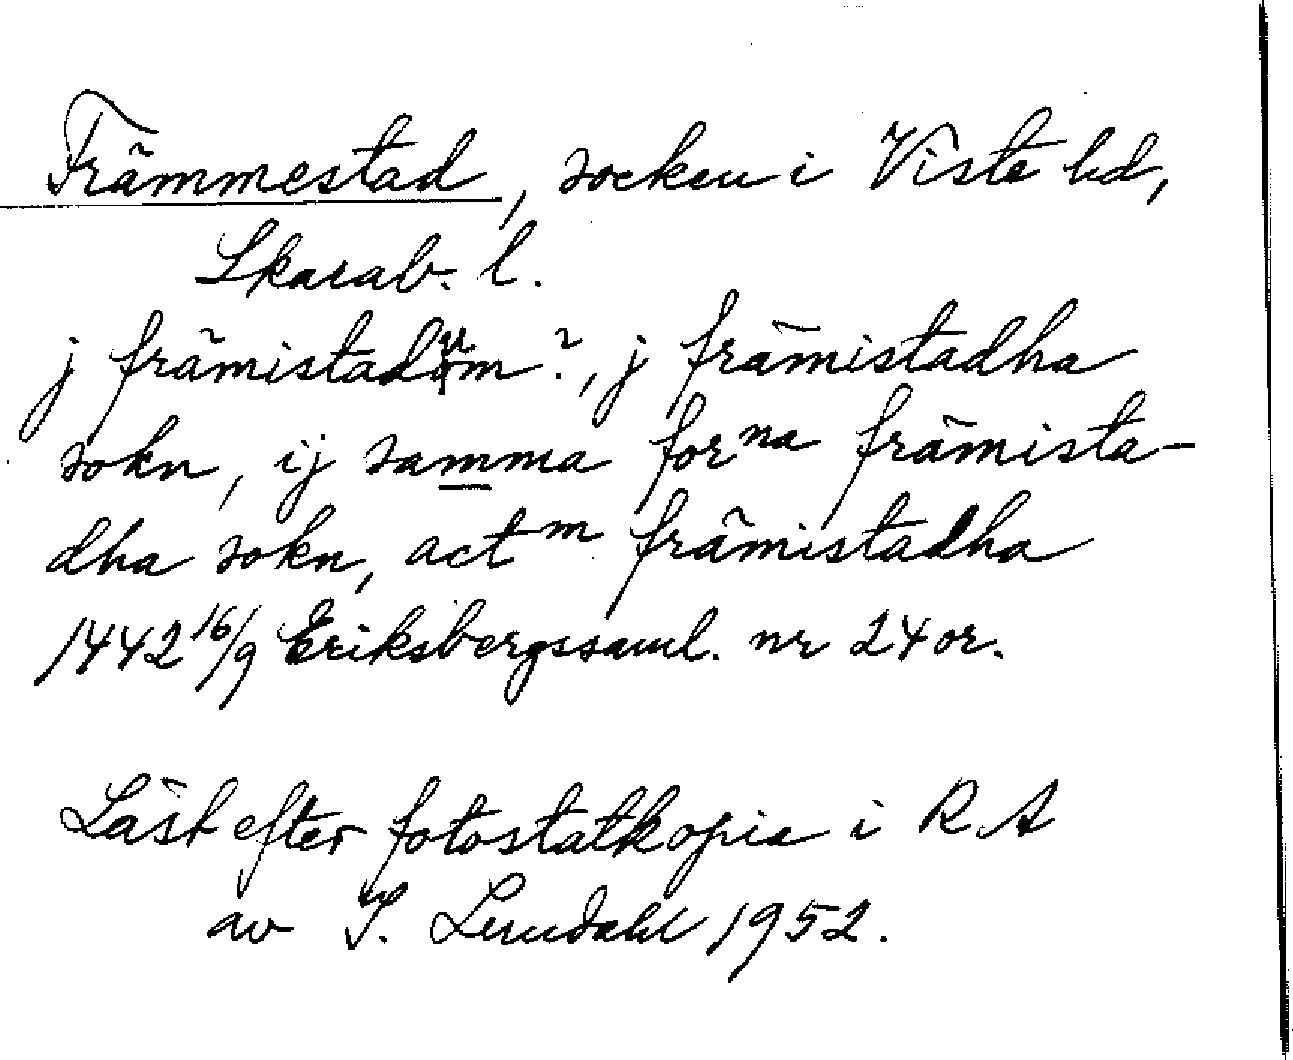 Främmestad, socken i Viste hd,
Skarab. l.
j främistadum?, j främistadha
sokn, ij samma forna främista-
dha sokn, actm främistadha
1442 16/9 Eriksbergssaml. nr 24 or.
Läst efter fotostatkopia i RA
av I. Lundahl 1952.